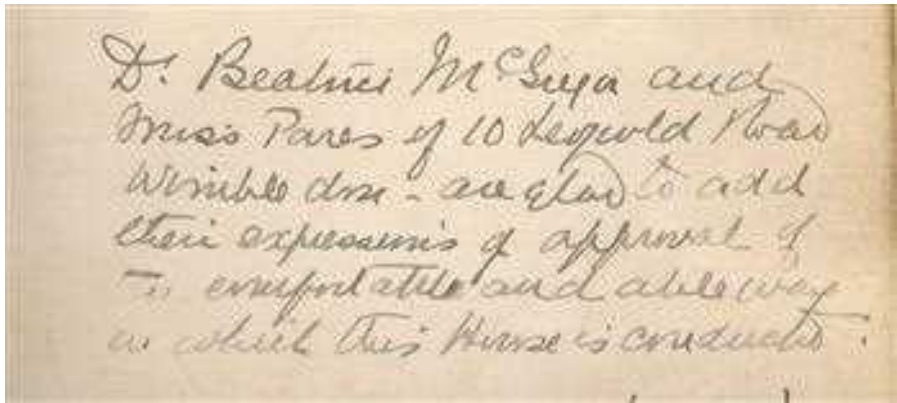 Dr. Beatrice McGregor and
Miss Pares of 10 Leopold Road
Wimbledon - are glad to add
their expressions of approval of
the comfortable and able way
in which this House is conducted.